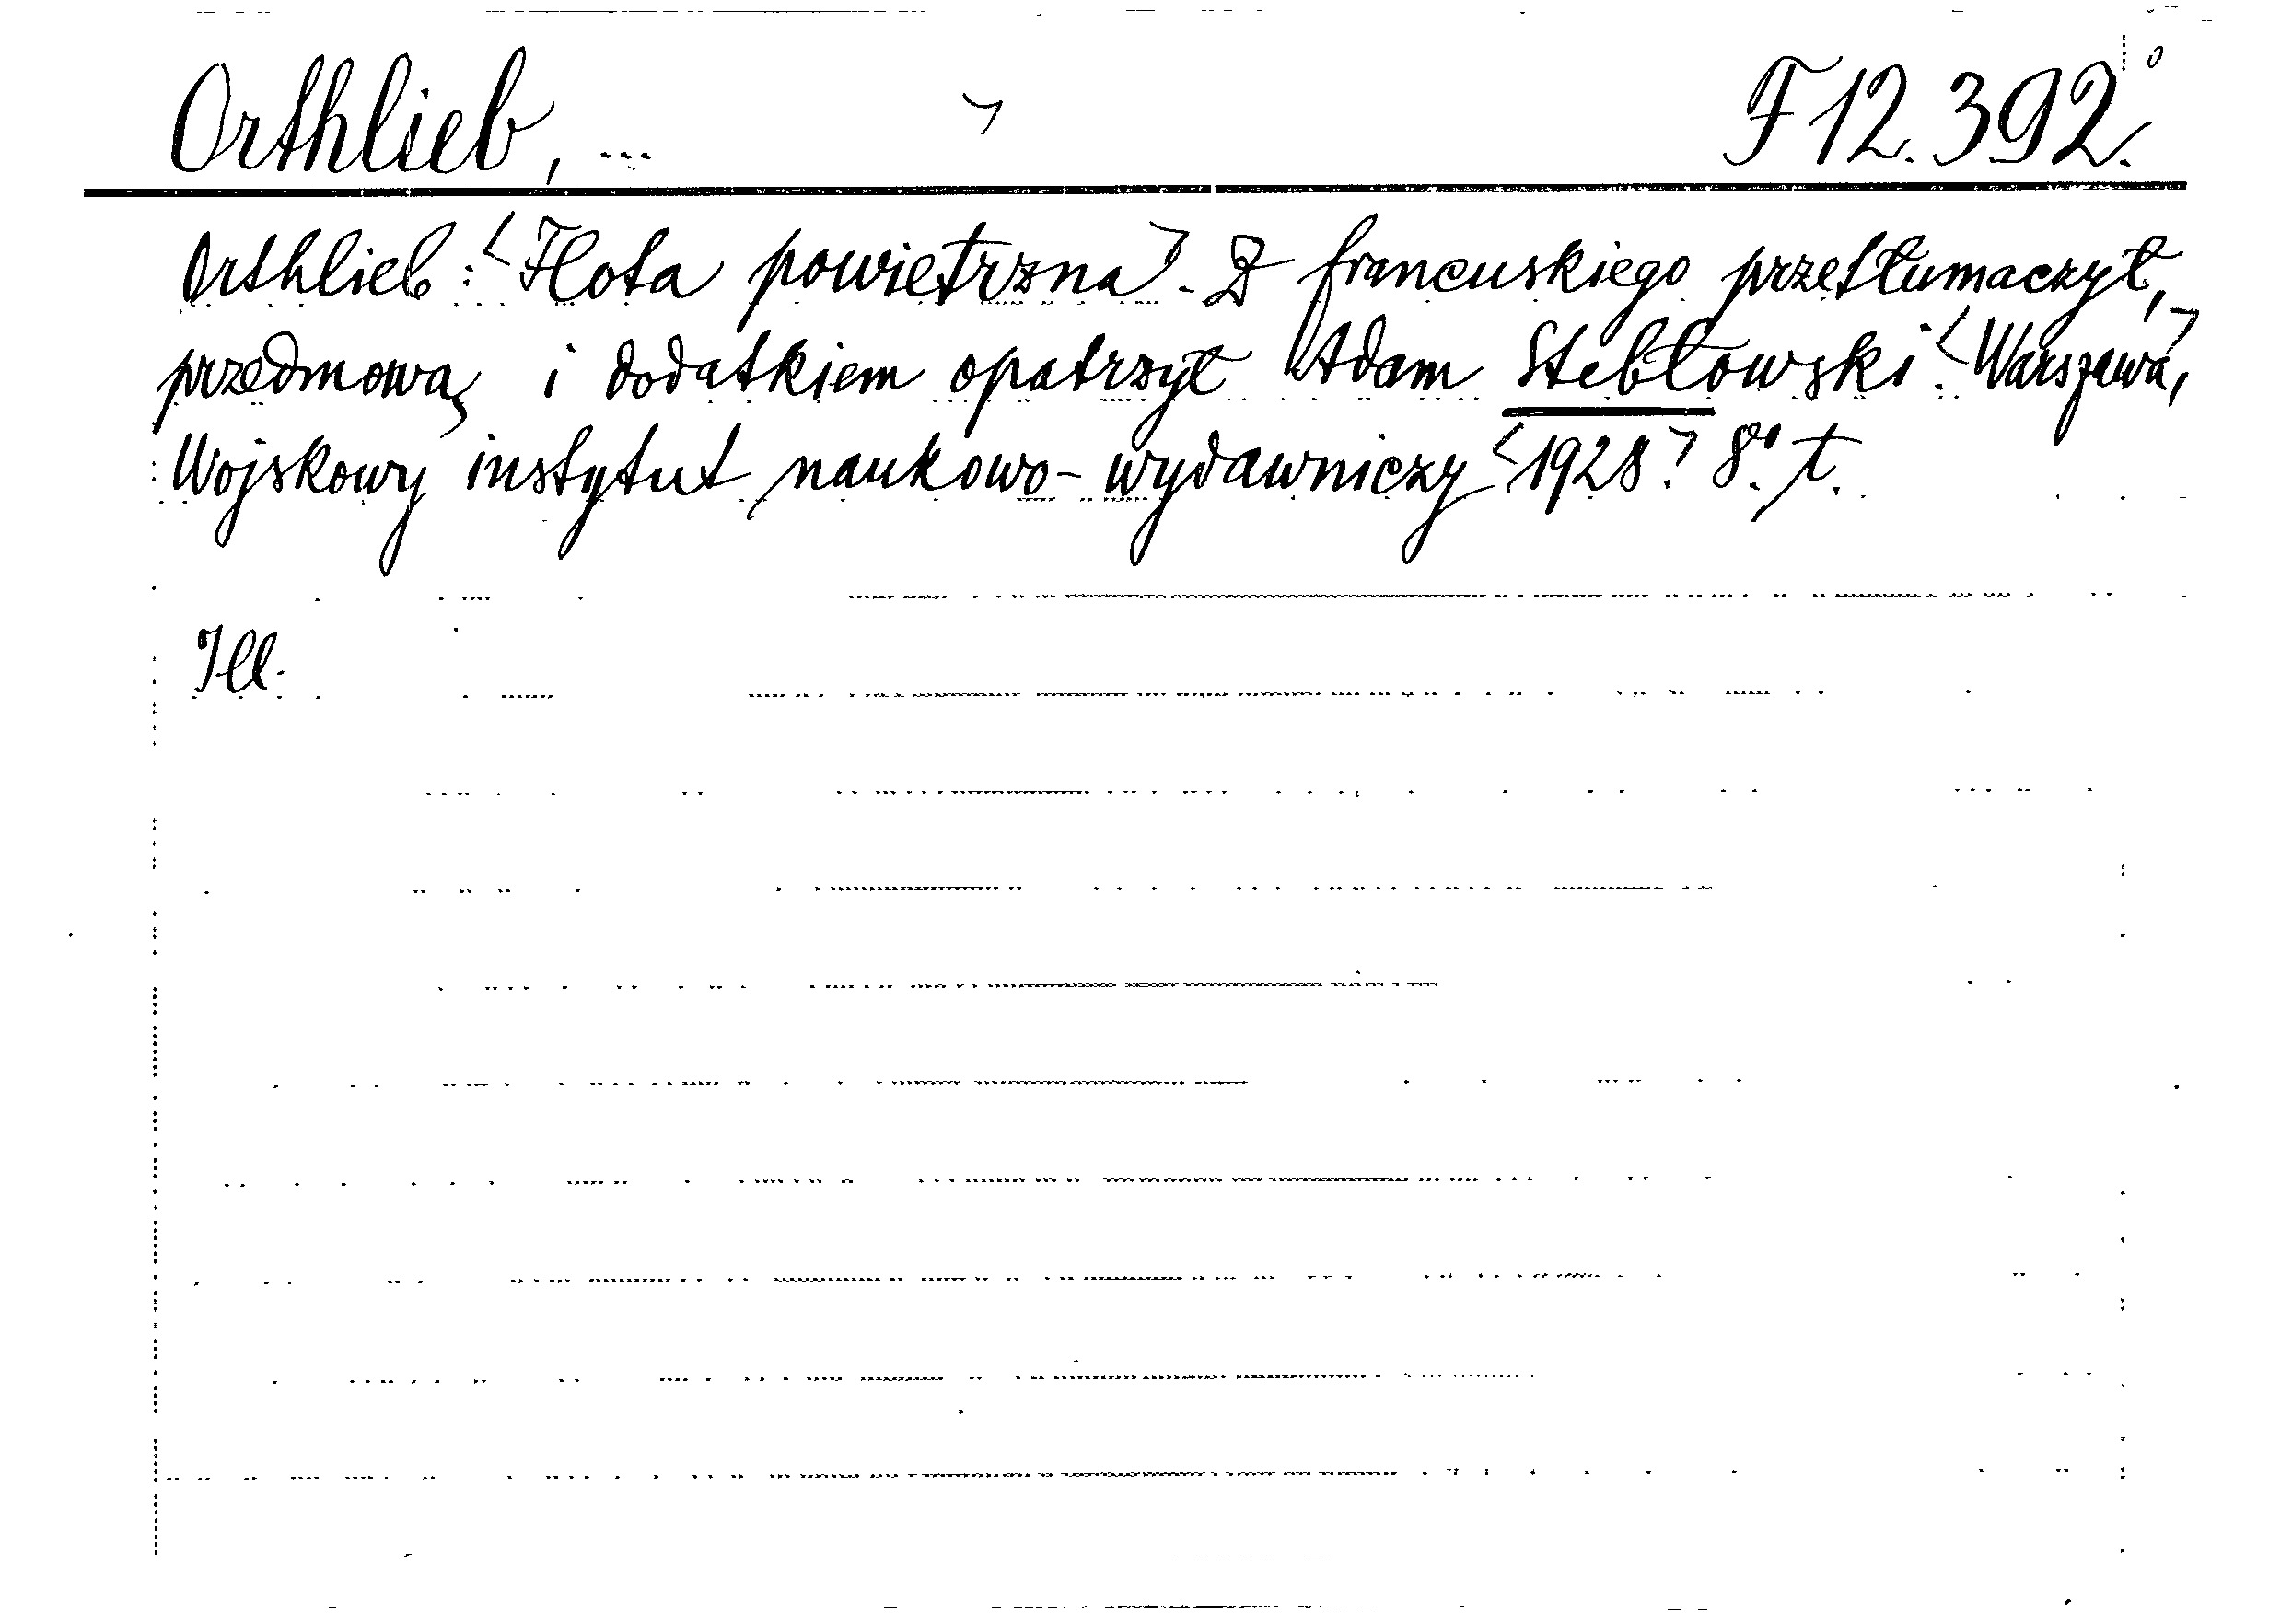 Orthlieb, ...
F 12.392.
Orthlieb: <Flota powietrzna>. Z francuskiego przetłumaczył,
przedmową i dodatkiem opatrzył Adam Stebłowski. <Warszawa>,
Wojskowy instytut naukowo-wydawniczy <1928>. 8º. t.
Ill.